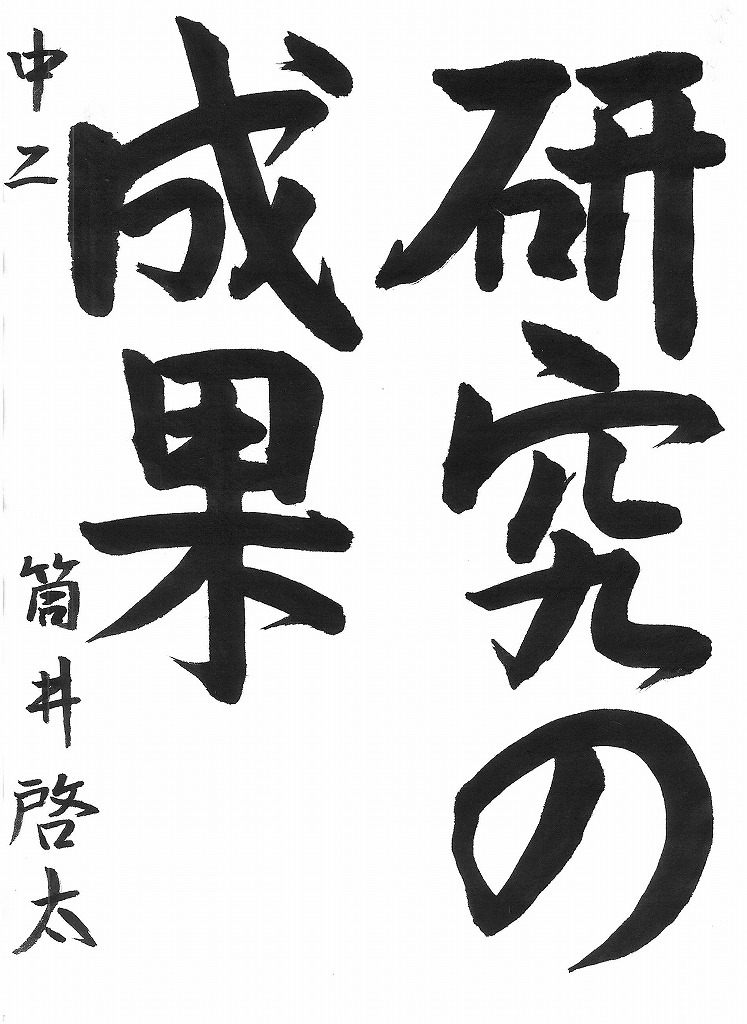 研究の
成果
中二 筒井啓太